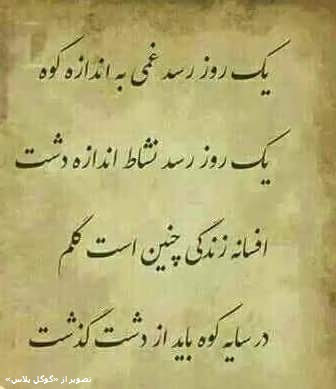 یک روز رسد غمی به اندازه کوه
یک روز رسد نشاط اندازه دشت
افسانه زندگی چنین است گلم
در سایه کوه باید از دشت گذشت
تصویر از «گوگل پلاس»